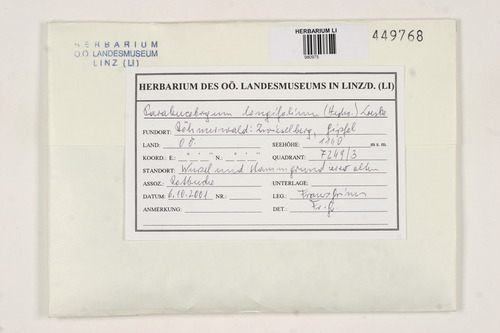 HERBARIUM
O.Ö. LANDESMUSEUM
LINZ (LI)
HERBARIUM LI
980975
449768
HERBARIUM DES OÖ. LANDESMUSEUMS IN LINZ/D. (LI)
Paraleucobryum longifolium (Hedw.) Loeske
FUNDORT: Böhmerwald: Zwieselberg, Gipfel
LAND: OÖ. SEEHÖHE: 1160 m s. m.
KOORD.: E.: ° ' " N.: ° ' " QUADRANT: 7249/3
STANDORT: Wurzel und Stammgrund einer alten
ASSOZ.: Rotbuche UNTERLAGE:
DATUM: 6.10.2001 NR.: LEG.: Franz Grims
ANMERKUNG: DET.: Fr. G.